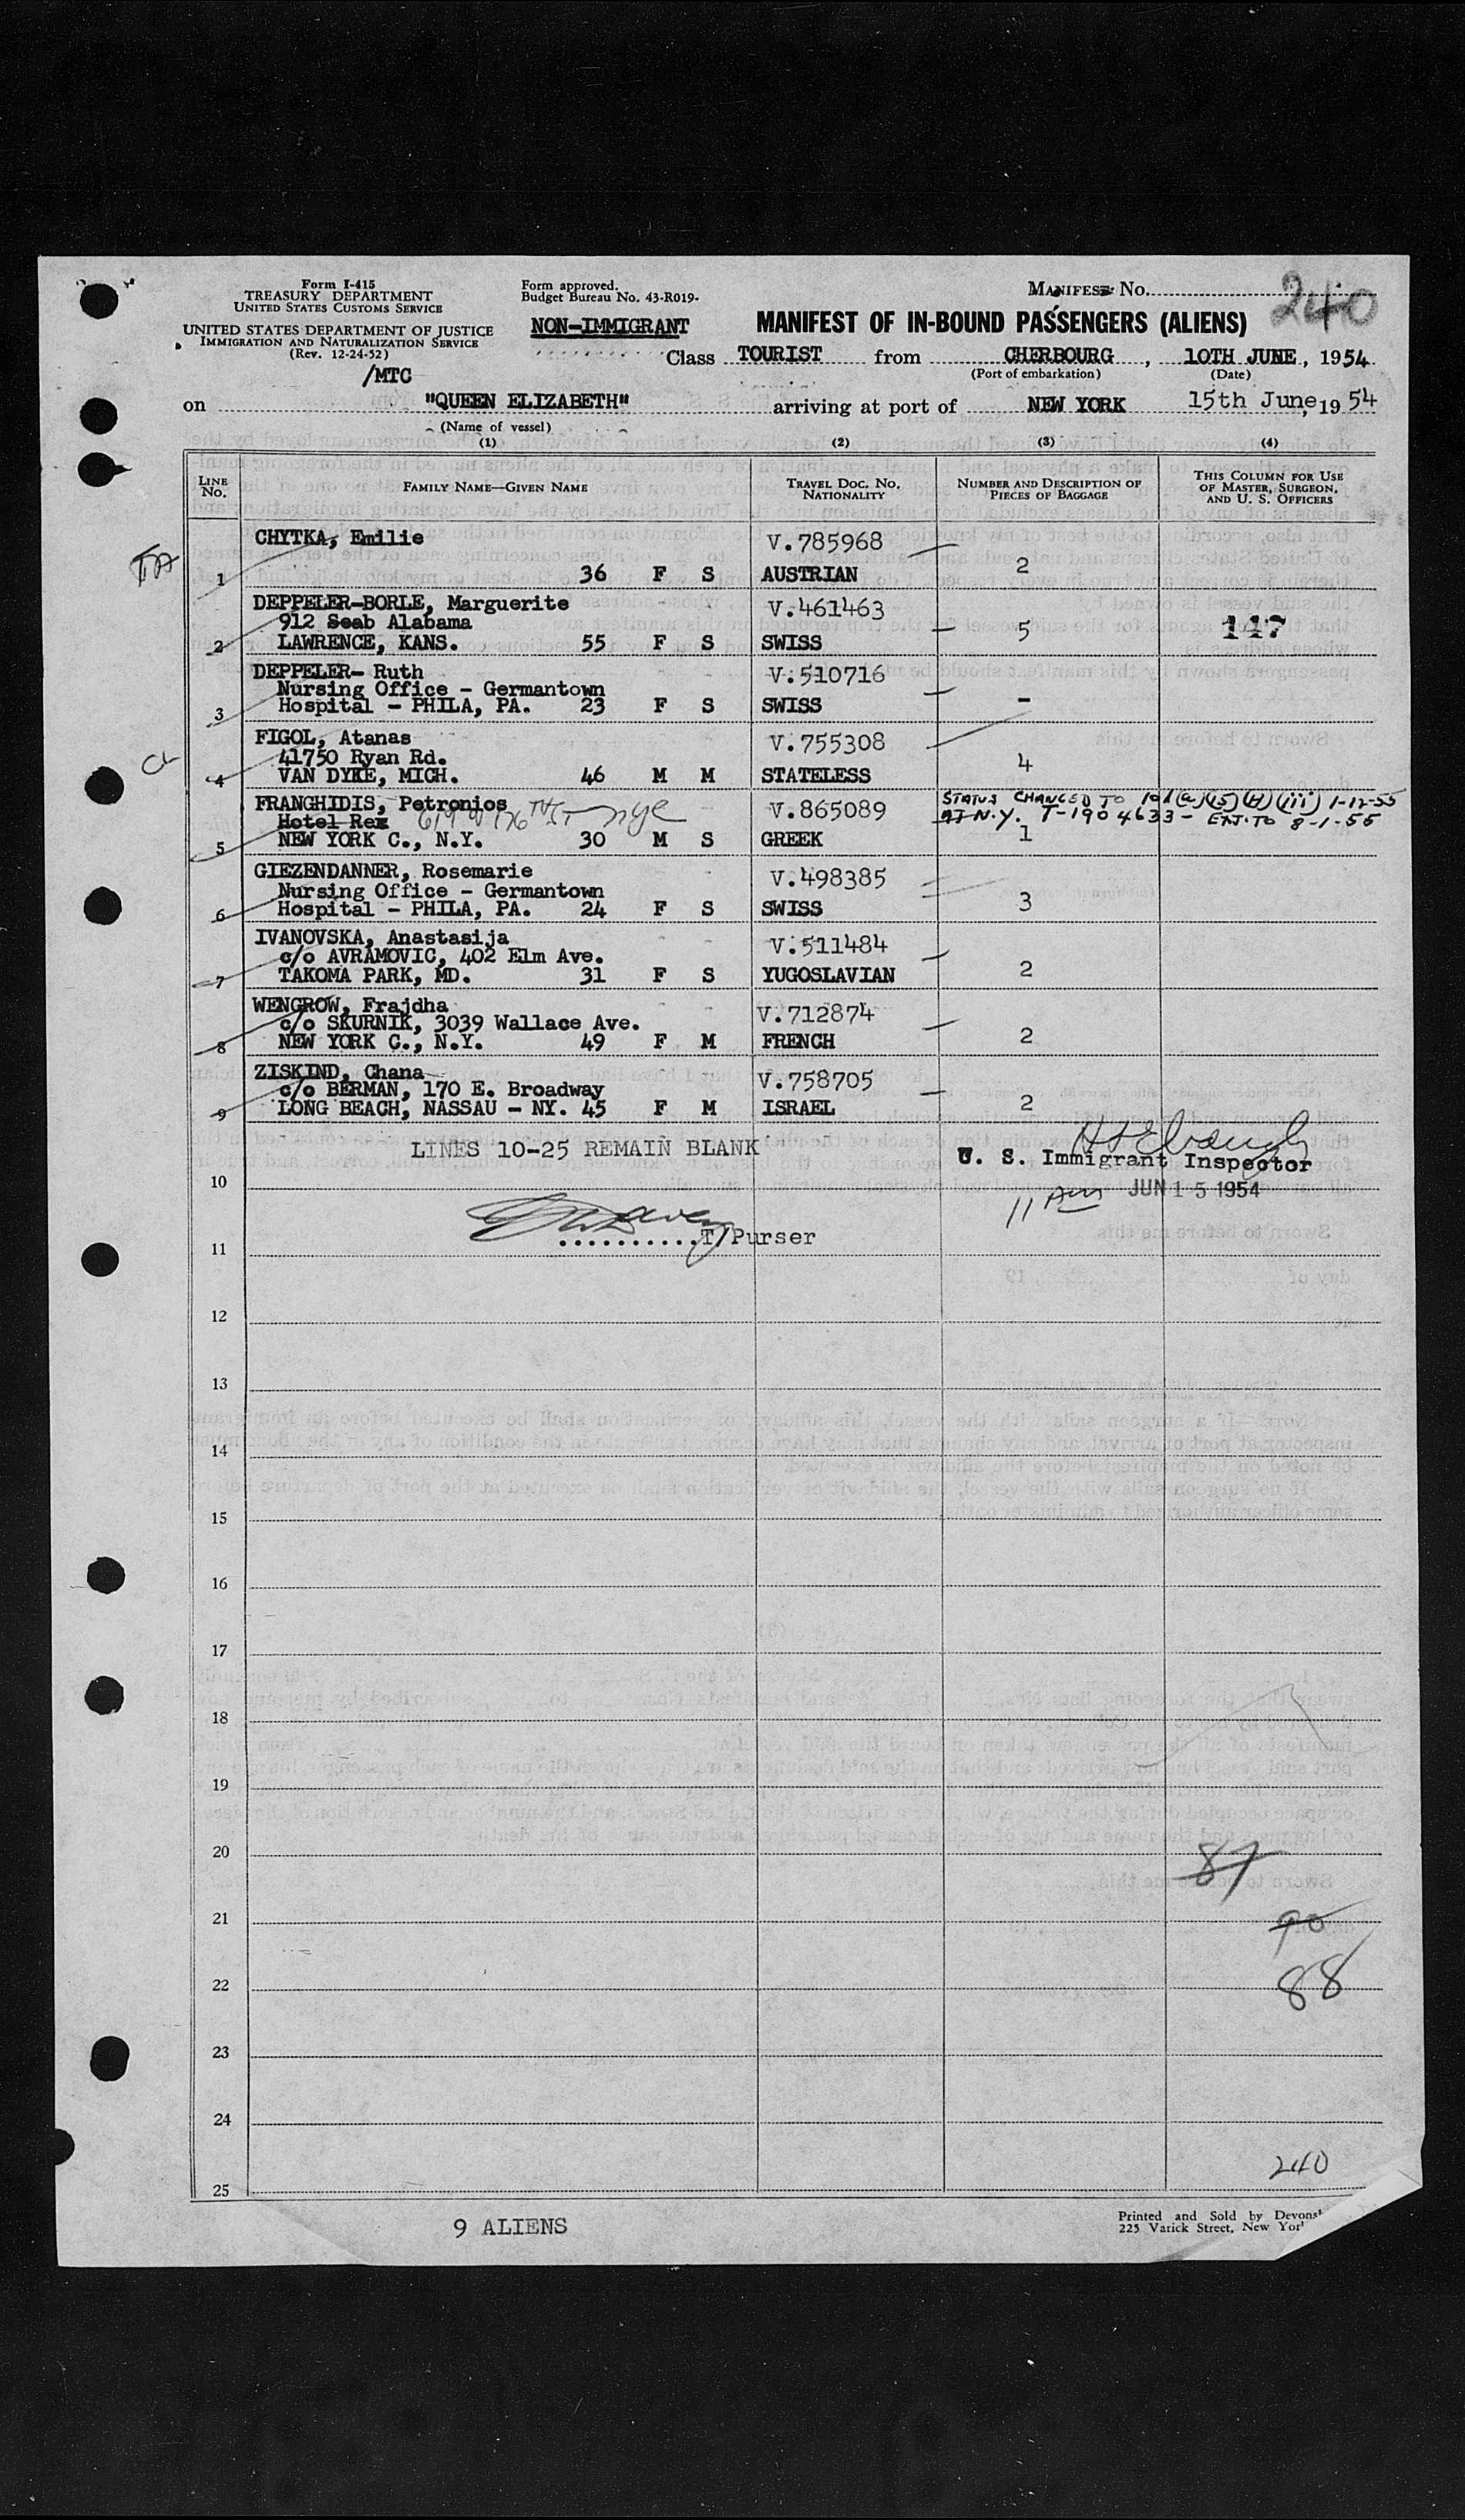 Form I-415
TREASURY DEPARTMENT
UNITED STATES CUSTOMS SERVICE
UNITED STATES DEPARTMENT OF JUSTICE
IMMIGRATION AND NATURALIZATION SERVICE
(Rev. 12-24-52)
/MTC
Form approved.
Budget Bureau No. 43-R019-
NON-IMMIGRANT
MANIFEST No. 240
MANIFEST OF IN-BOUND PASSENGERS (ALIENS)
Class TOURIST from CHERBOURG, 10TH JUNE, 1954
(Port of embarkation) (Date)
on "QUEEN ELIZABETH" arriving at port of NEW YORK 15th June, 1954
(Name of vessel)
(1) (2) (3) (4)
LINE No. FAMILY NAME—GIVEN NAME TRAVEL DOC. NO. NATIONALITY NUMBER AND DESCRIPTION OF PIECES OF BAGGAGE THIS COLUMN FOR USE OF MASTER, SURGEON, AND U. S. OFFICERS
CHYTKA, Emilie V.785968
1 36 F S AUSTRIAN 2
DEPPELER-BORLE, Marguerite V.461463
912 Alabama
2 LAWRENCE, KANS. 55 F S SWISS 5 117
DEPPELER- Ruth V.510716
Nursing Office - Germantown
3 Hospital - PHILA, PA. 23 F S SWISS -
CL
FIGOL, Atanas V.755308
41750 Ryan Rd.
4 VAN DYKE, MICH. 46 M M STATELESS 4
FRANGHIDIS, Petronios V.865089 STATUS CHANGED TO 101(a)(15)(H)(iii) 1-12-55
Hotel Rex 619 W 176TH ST nyc AT N.Y. T-1904633 - EXT. TO 8-1-55
5 NEW YORK C., N.Y. 30 M S GREEK 1
GIEZENDANNER, Rosemarie V.498385
Nursing Office - Germantown
6 Hospital - PHILA, PA. 24 F S SWISS 3
IVANOVSKA, Anastasija V.511484
c/o AVRAMOVIC, 402 Elm Ave.
7 TAKOMA PARK, MD. 31 F S YUGOSLAVIAN 2
WENGROW, Frajdha V.712874
c/o SKURNIK, 3039 Wallace Ave.
8 NEW YORK C., N.Y. 49 F M FRENCH 2
ZISKIND, Chana V.758705
c/o BERMAN, 170 E. Broadway
9 LONG BEACH, NASSAU - NY. 45 F M ISRAEL 2
LINES 10-25 REMAIN BLANK
U. S. Immigrant Inspector
10 11 Am JUN 15 1954
..........T/Purser
11
12
13
14
15
16
17
18
19
20 87
21 90
22 88
23
24
240
25
9 ALIENS
Printed and Sold by
225 Varick Street, New